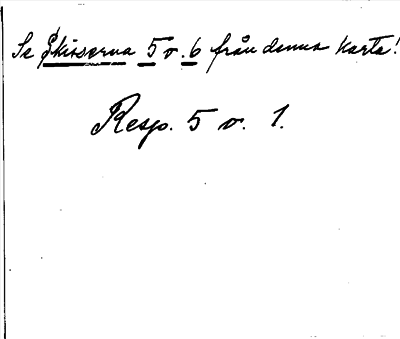 Se Skisserna 5 o. 6 från denna karta!
Resp. 5 o. 1.